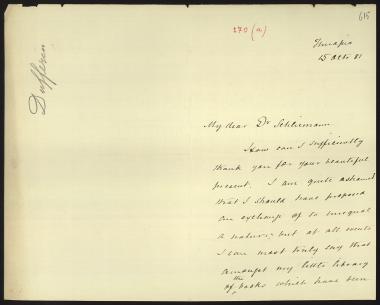 615
170 (a)
Dufferin
Therapia
15 Octr 81
My dear Dr Schliemann
How can I sufficiently
thank you for your beautiful
present. I am quite ashamed
that I should have proposed
an exchange of so unequal
a nature; but at all events
I can most truly say that
amongst my little library
the
of books which have been